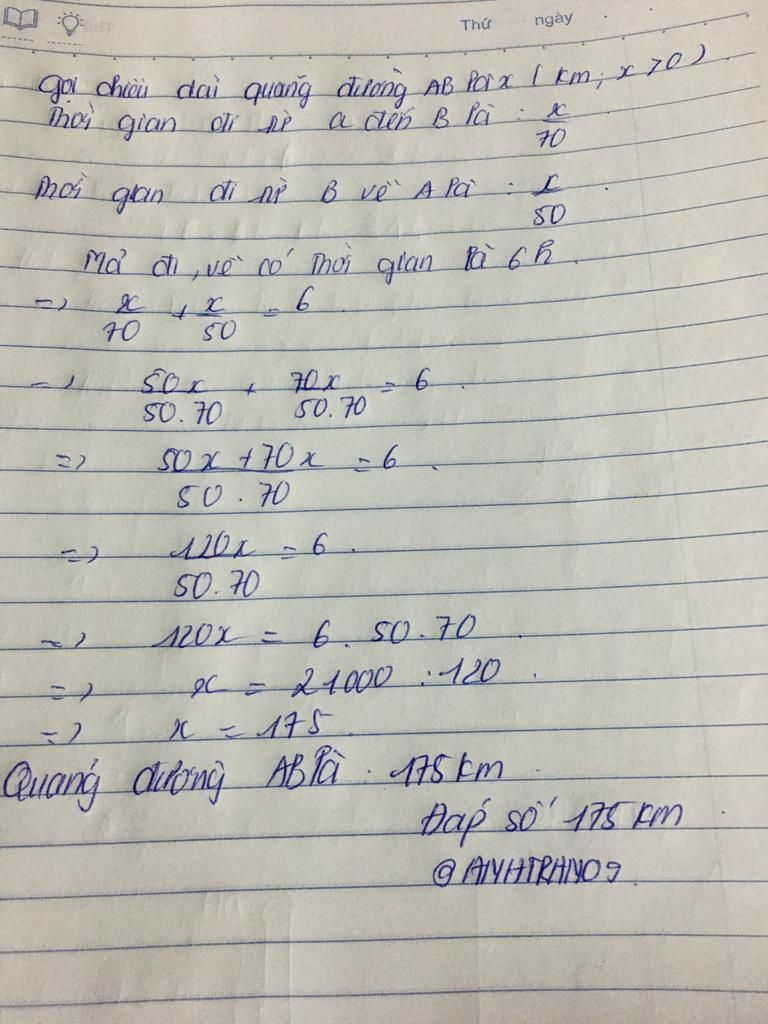 Thứ ngày
Gọi chiều dài quãng đường AB là x (km; x > 0)
Thời gian đi từ a đến B là : x/70
Thời gian đi từ B về A là : x/50 .
Mà đi, về có thời gian là 6h.
=> x/70 + x/50 = 6
=> 50x/50.70 + 70x/50.70 = 6 .
=> 50x + 70x/50.70 = 6 .
=> 120x/50.70 = 6 .
=> 120x = 6 . 50 . 70 .
=> x = 21000 : 120 .
=> x = 175 .
Quãng đường AB là : 175 km .
Đáp số 175 km
@ANHTRAN09.